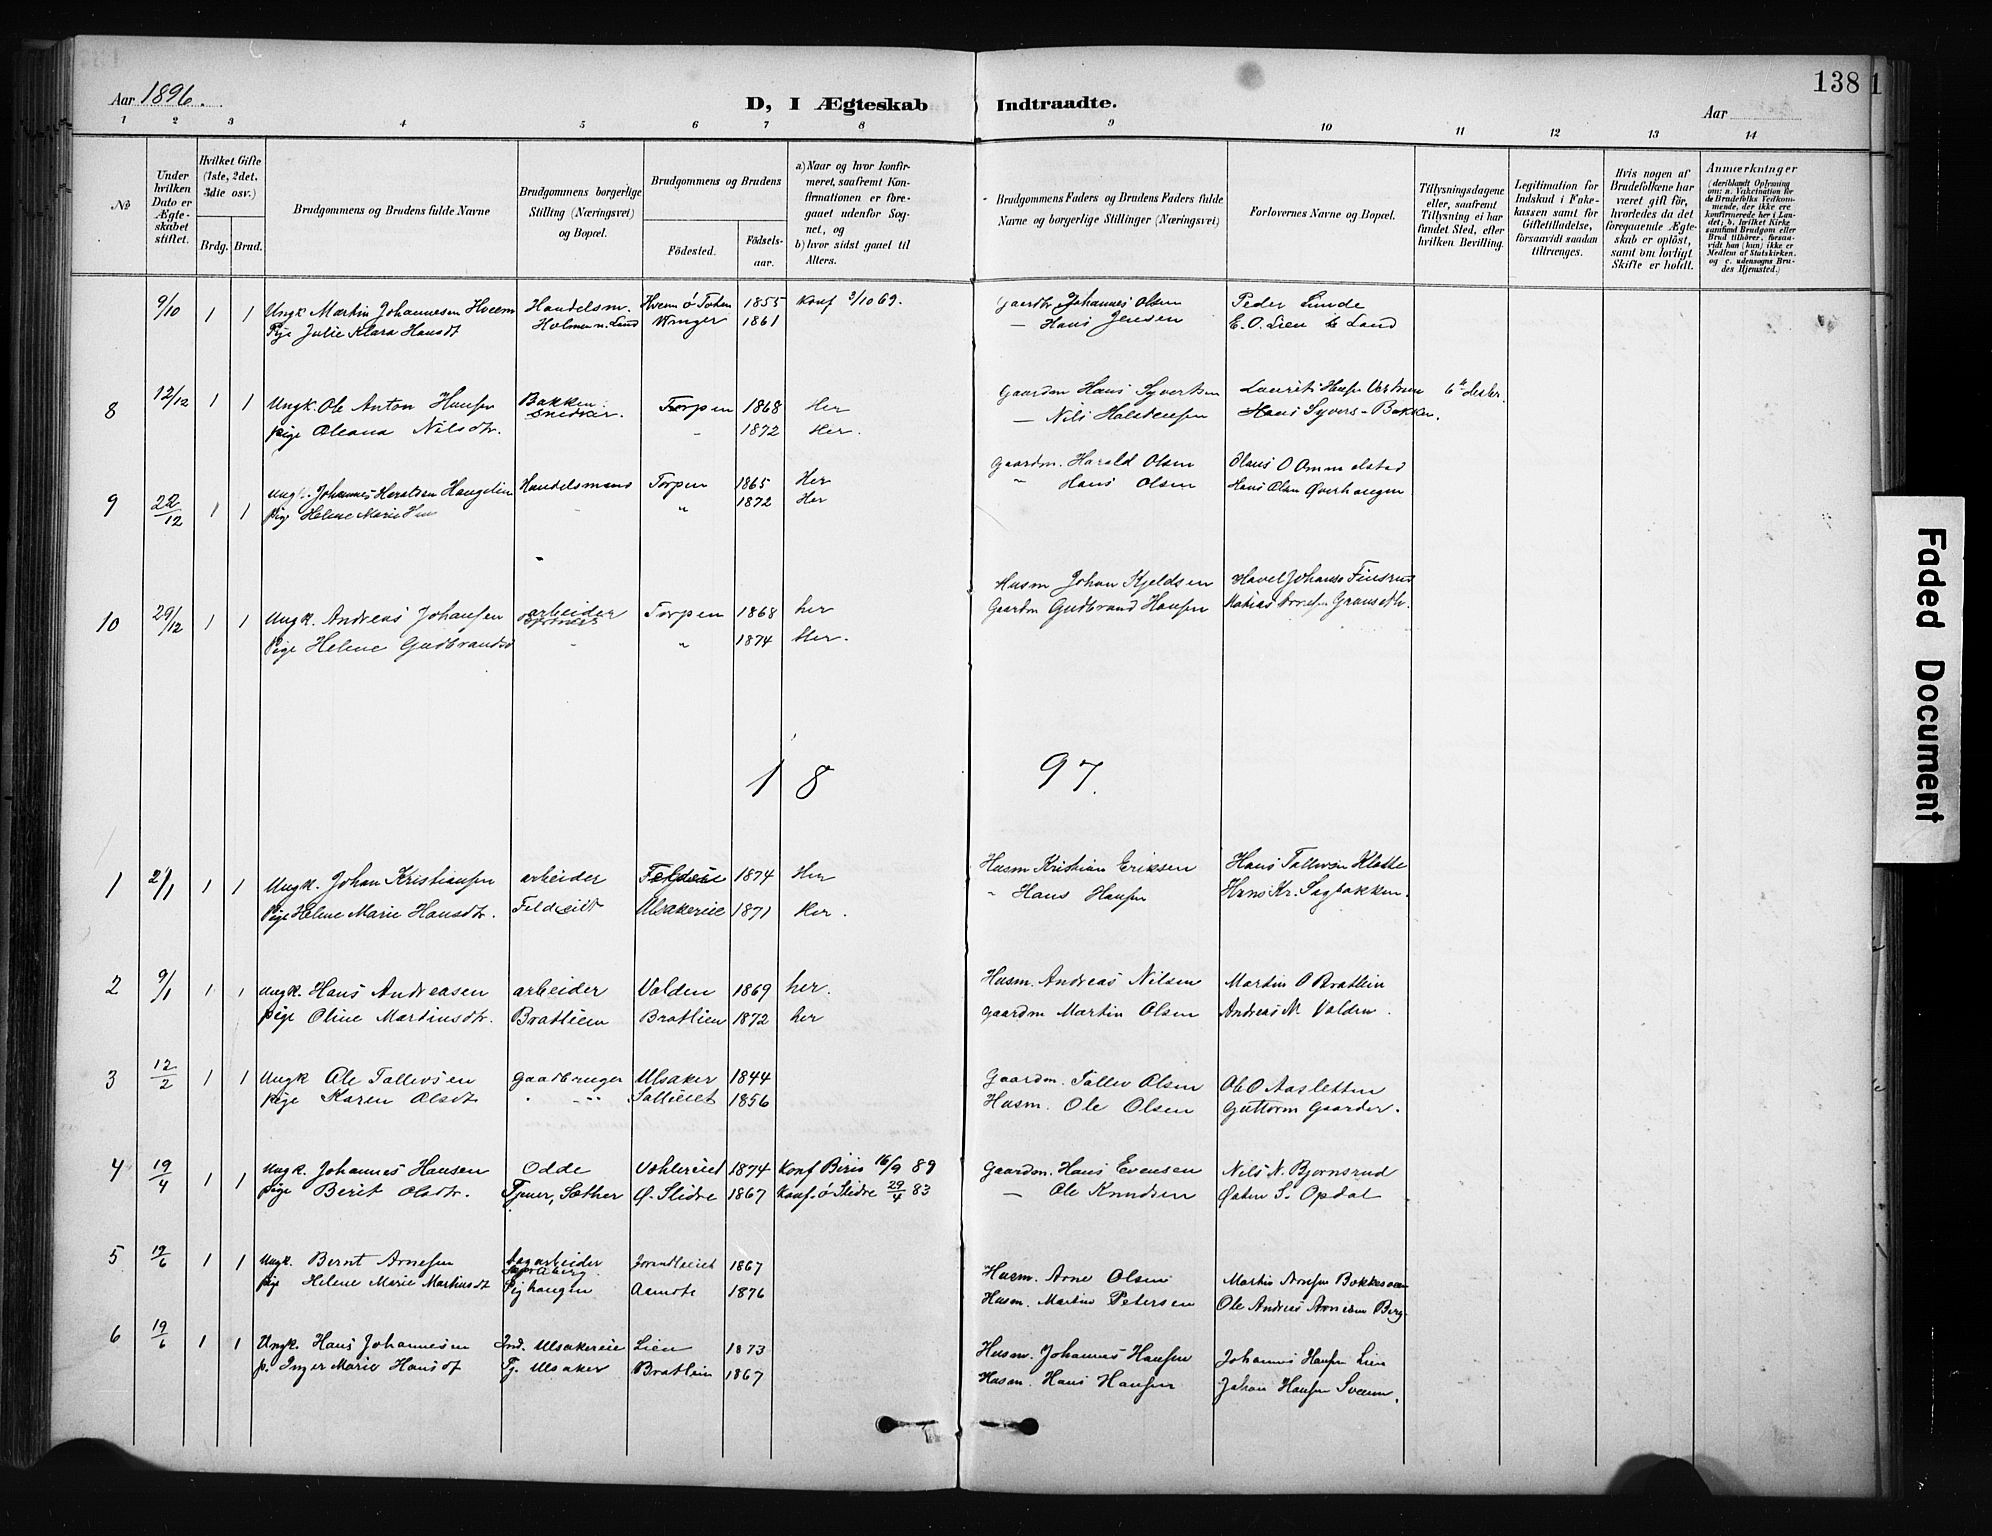 138
Aar 1896.
D, I Ægteskab Indtraadte.
Aar
1 2 3 4 5 6 7 8 9 10 11 12 13 14
No
Under hvilken Dato er Ægteskabet stiftet.
Hvilket Gifte (1ste, 2det, 3die osv.)
Brdg. Brud.
Brudgommens og Brudens fulde Navne
Brudgommens borgerlige Stilling (Næringsvei) og Bopæl.
Brudgommens og Brudens
Födested. Födselsaar.
a) Naar og hvor konfirmeret, saafremt Konfirmationen er foregaaet udenfor Sognet, og
b) hvor sidst gaaet til Alters.
Brudgommens Faders og Brudens Faders fulde Navne og borgerlige Stillinger (Næringsvei)
Forlovernes Navne og Bopæl.
Tillysningsdagene eller, saafremt Tillysning ei har fundet Sted, efter hvilken Bevilling.
Legitimation for Indskud i Enkekassen samt for Giftetilladelse, forsaavidt saadan tiltrænges.
Hvis nogen af Brudefolkene har været gift för, hvorledes da det foregaaende Ægteskab er oplöst, samt om lovligt Skifte er holdt.
Anmærkninger
9/10 1 1 Ungk. Martin Johannesen Hveem Handelsm. Hveem ö Toten 1855 Konf 3/10 69. Gaardbr Johannes Olsen Peder Linde
Pige Julie Klara Hansdt Holmen n. Land Vinger 1861 — Hans Jensen E. O. Lien Land
8 12/12 1 1 Ungk. Ole Anton Hansen Bakken Torpen 1868 Her Gaardm Hans Syvertsen 6te Lester.
snedker.
Pige Oleana Nilsdtr. - 1872 Her. — Nils Halstensen Hans Syvers - Bakken.
9 22/12 1 1 Ungk. Johannes Haralsen Haugelien Handelsmand Torpen 1865 Her Gaardm. Harald Olsen Hans O Ommelstad
Pige Helene Marie - " 1872 Her " Hans Olsen Hans Olsen Överhaugen
10 29/12 1 1 Ungk. Andreas Johansen arbeider Torpen 1868 her Husm Johan Kjeldsen Havel Johanse Finsrud
Pige Helene Gudbrandsd - " 1874 Her. Gaardm Gudbrand Hansen
1 8 97.
1 2/1 1 1 Ungk. Johan Kristiansen arbeider 1874 Her Husm Kristian Eriksen Hans Tallevsen Klette
Pige Helene Marie Hansdtr. Ulsakereie 1871 Her. " Hans Hansen Hans Kr. Sagbakken.
2 9/1 1 1 Ungk. Hans Andreasen arbeider Volden 1869 her. Husm. Andreas Nilsen Martin O Bratlien
Pige Oline Martinsdtr. Bratlien Bratlien 1872 her Gaardm Martin Olsen Andreas N Volden.
3 12/2 1 1 Ungk Ole Tallevsen Gaardbruger Ulsaker 1844 Gaardm. Tallev Olsen Ole O Aasletten
Pige Karen Olsdt 1856 Husm. Ole Olsen Guttorm Gaarder.
4 19/4 1 1 Ungk. Johannes Hansen Odde 1874 Konf Biris 16/9 89 Gaardm. Hans Evensen Nils N. Bjornsrud
Pige Berit Olsdtr. Tjener, Sæther Ö. Slidre 1867 Konf. ö Slidre 29/4 83 — Ole Knudsen Östen S. Opdal
5 19/6 1 1 Ungk. Bernt Arnesen Sagarbeider 1867 Husm. Arne Olsen Martin Arnesen
Pige Helene Marie Martinsdt Aamodt 1876 Husm. Martin Petersen Ole Andreas Arnesen Berg
6 19/6 1 1 Ungk. Hans Johannesen Ind. Ulsakereie Lien 1873 Husm. Johannes Hansen Johannes Hansen Lien
P. Inger Marie Hansdt Tj. Ulsaker Bratlien 1867 Husm. Hans Hansen Johan Hansen Sveen.
Faded Document